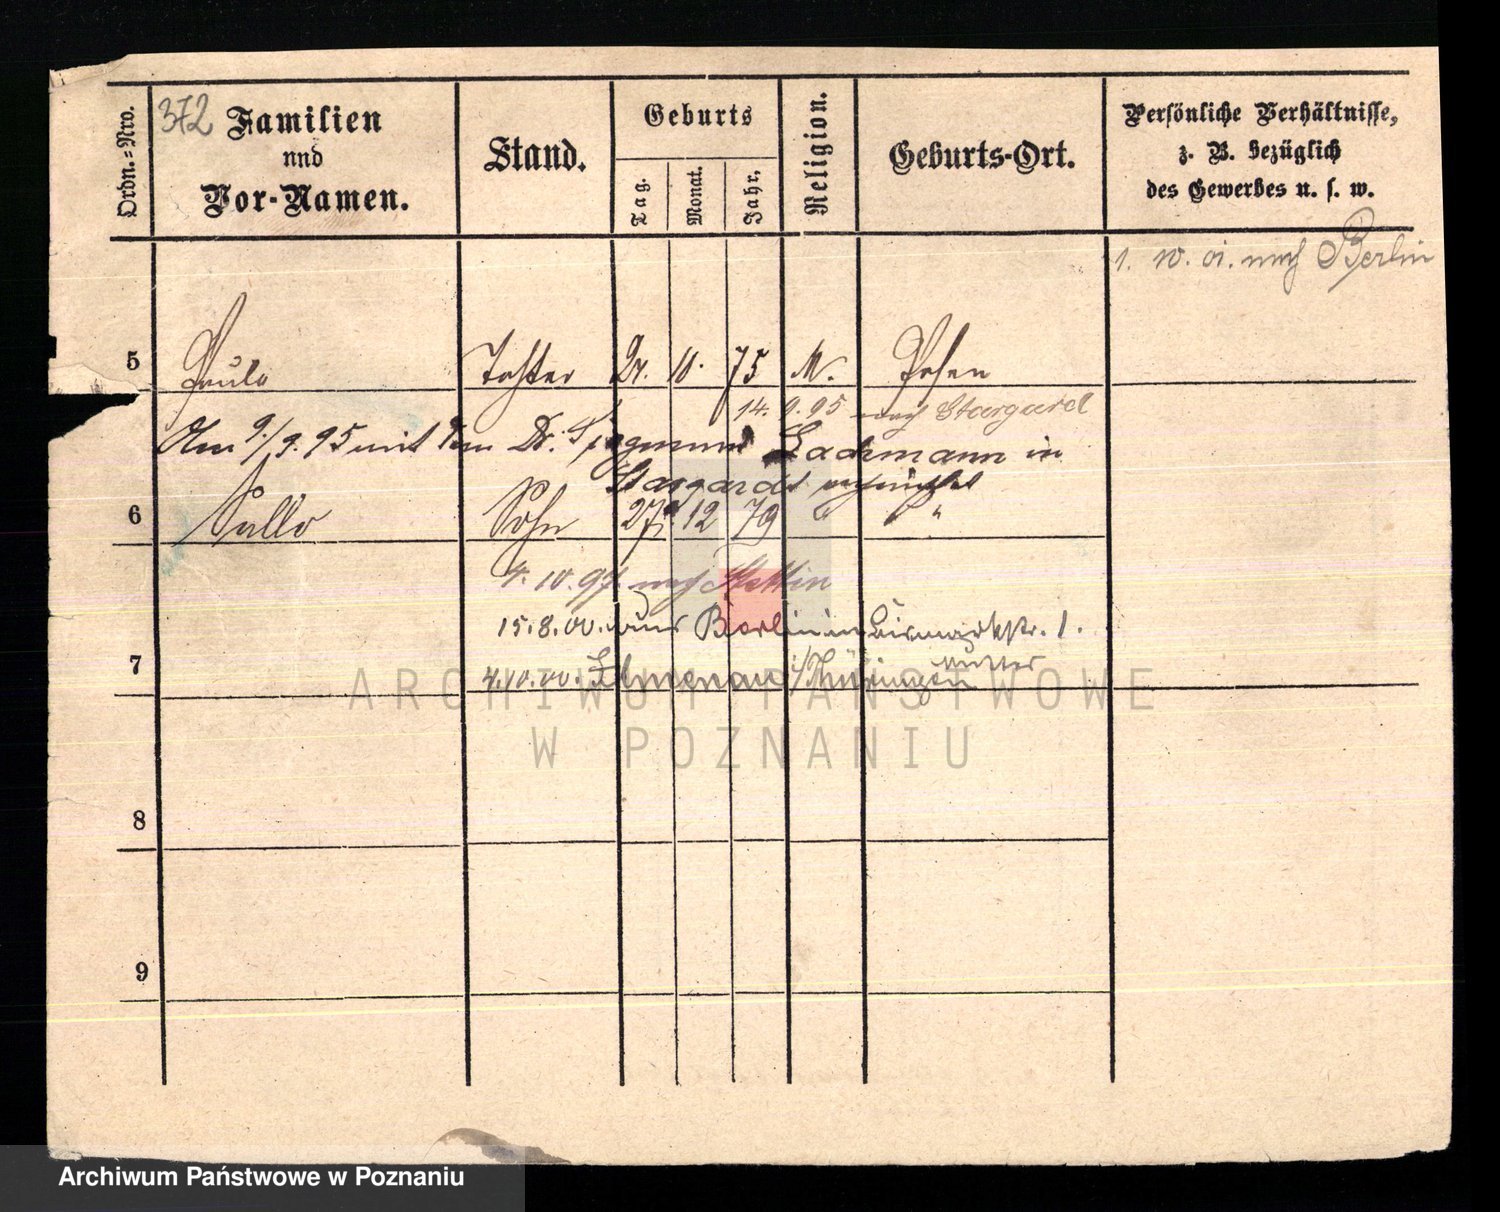 372
Ordn.=Nro.
Familien
und
Vor-Namen.
Stand.
Geburts
Tag.
Monat.
Jahr.
Religion.
Geburts-Ort.
Persönliche Verhältnisse,
z. B. bezüglich
des Gewerbes u. s. w.
1. 10. 01. nach Berlin
5 Paula Tochter 21. 10. 75 M. Posen
14. 9. 95 nach Stargard
Am 9./9. 95 mit dem Dr. Siegmund Lachmann in
Stargardt
6 Sallo Sohn 27. 12 79 " "
4. 10. 97. nach Stettin
15. 8. 00. aus Berlin Bismarckstr. 1.
Mutter
7 4. 10. 00. Ilmenau i/Thüringen
8
9
ARCHIWUM PAŃSTWOWE
W POZNANIU
Archiwum Państwowe w Poznaniu